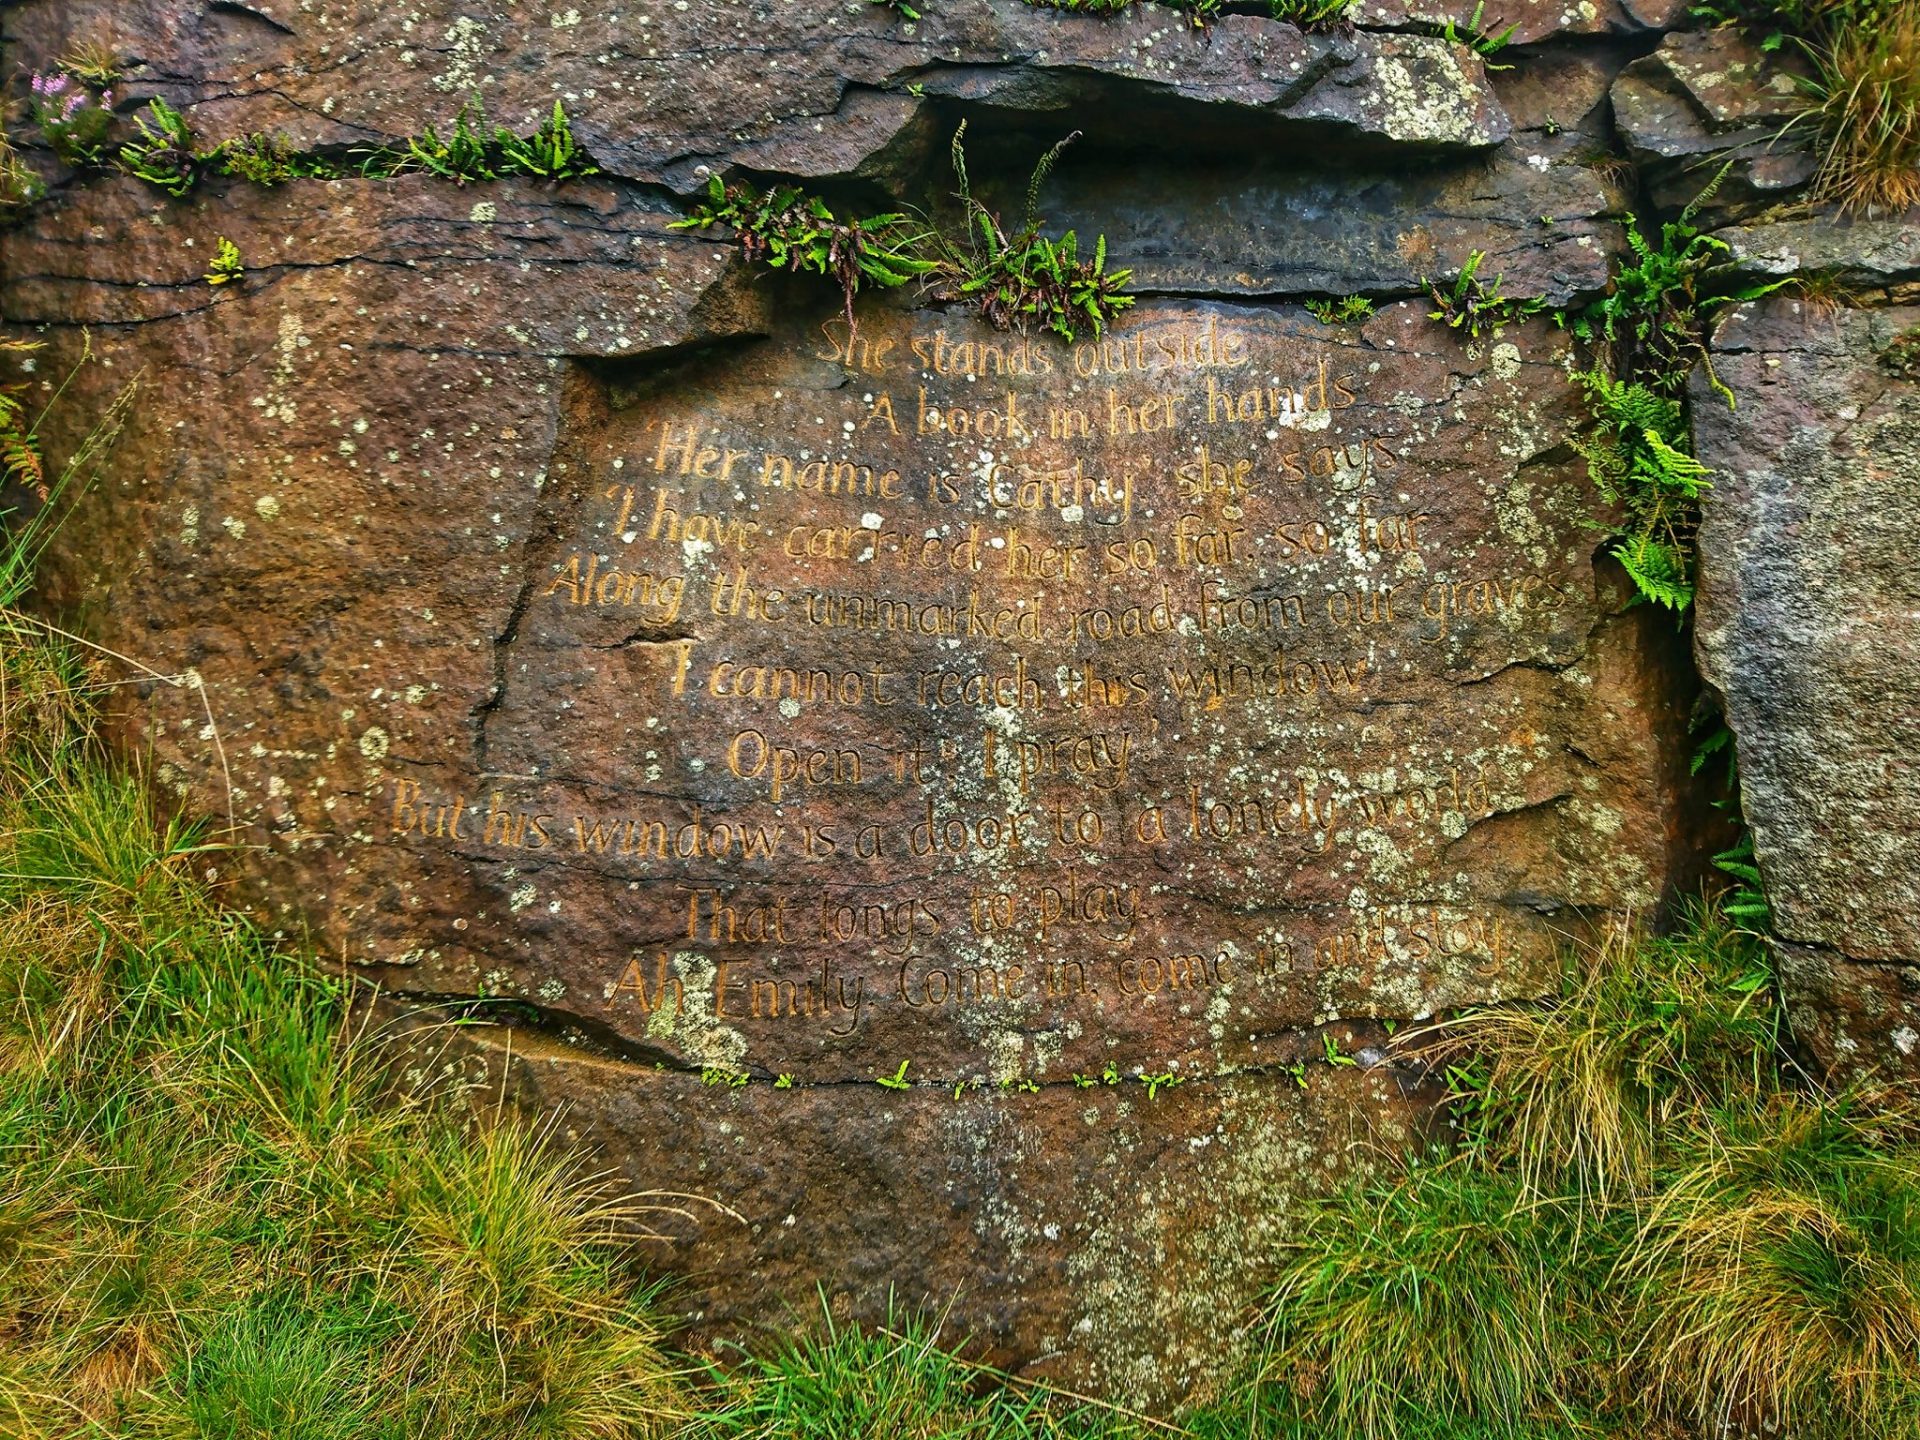 She stands outside
A book in her hands
'Her name is Cathy' she says
'I have carried her so far, so far
Along the unmarked road from our graves
I cannot reach this window
Open it, I pray.'
But his window is a door to a lonely world
That longs to play.
Ah Emily. Come in, come in and stay.